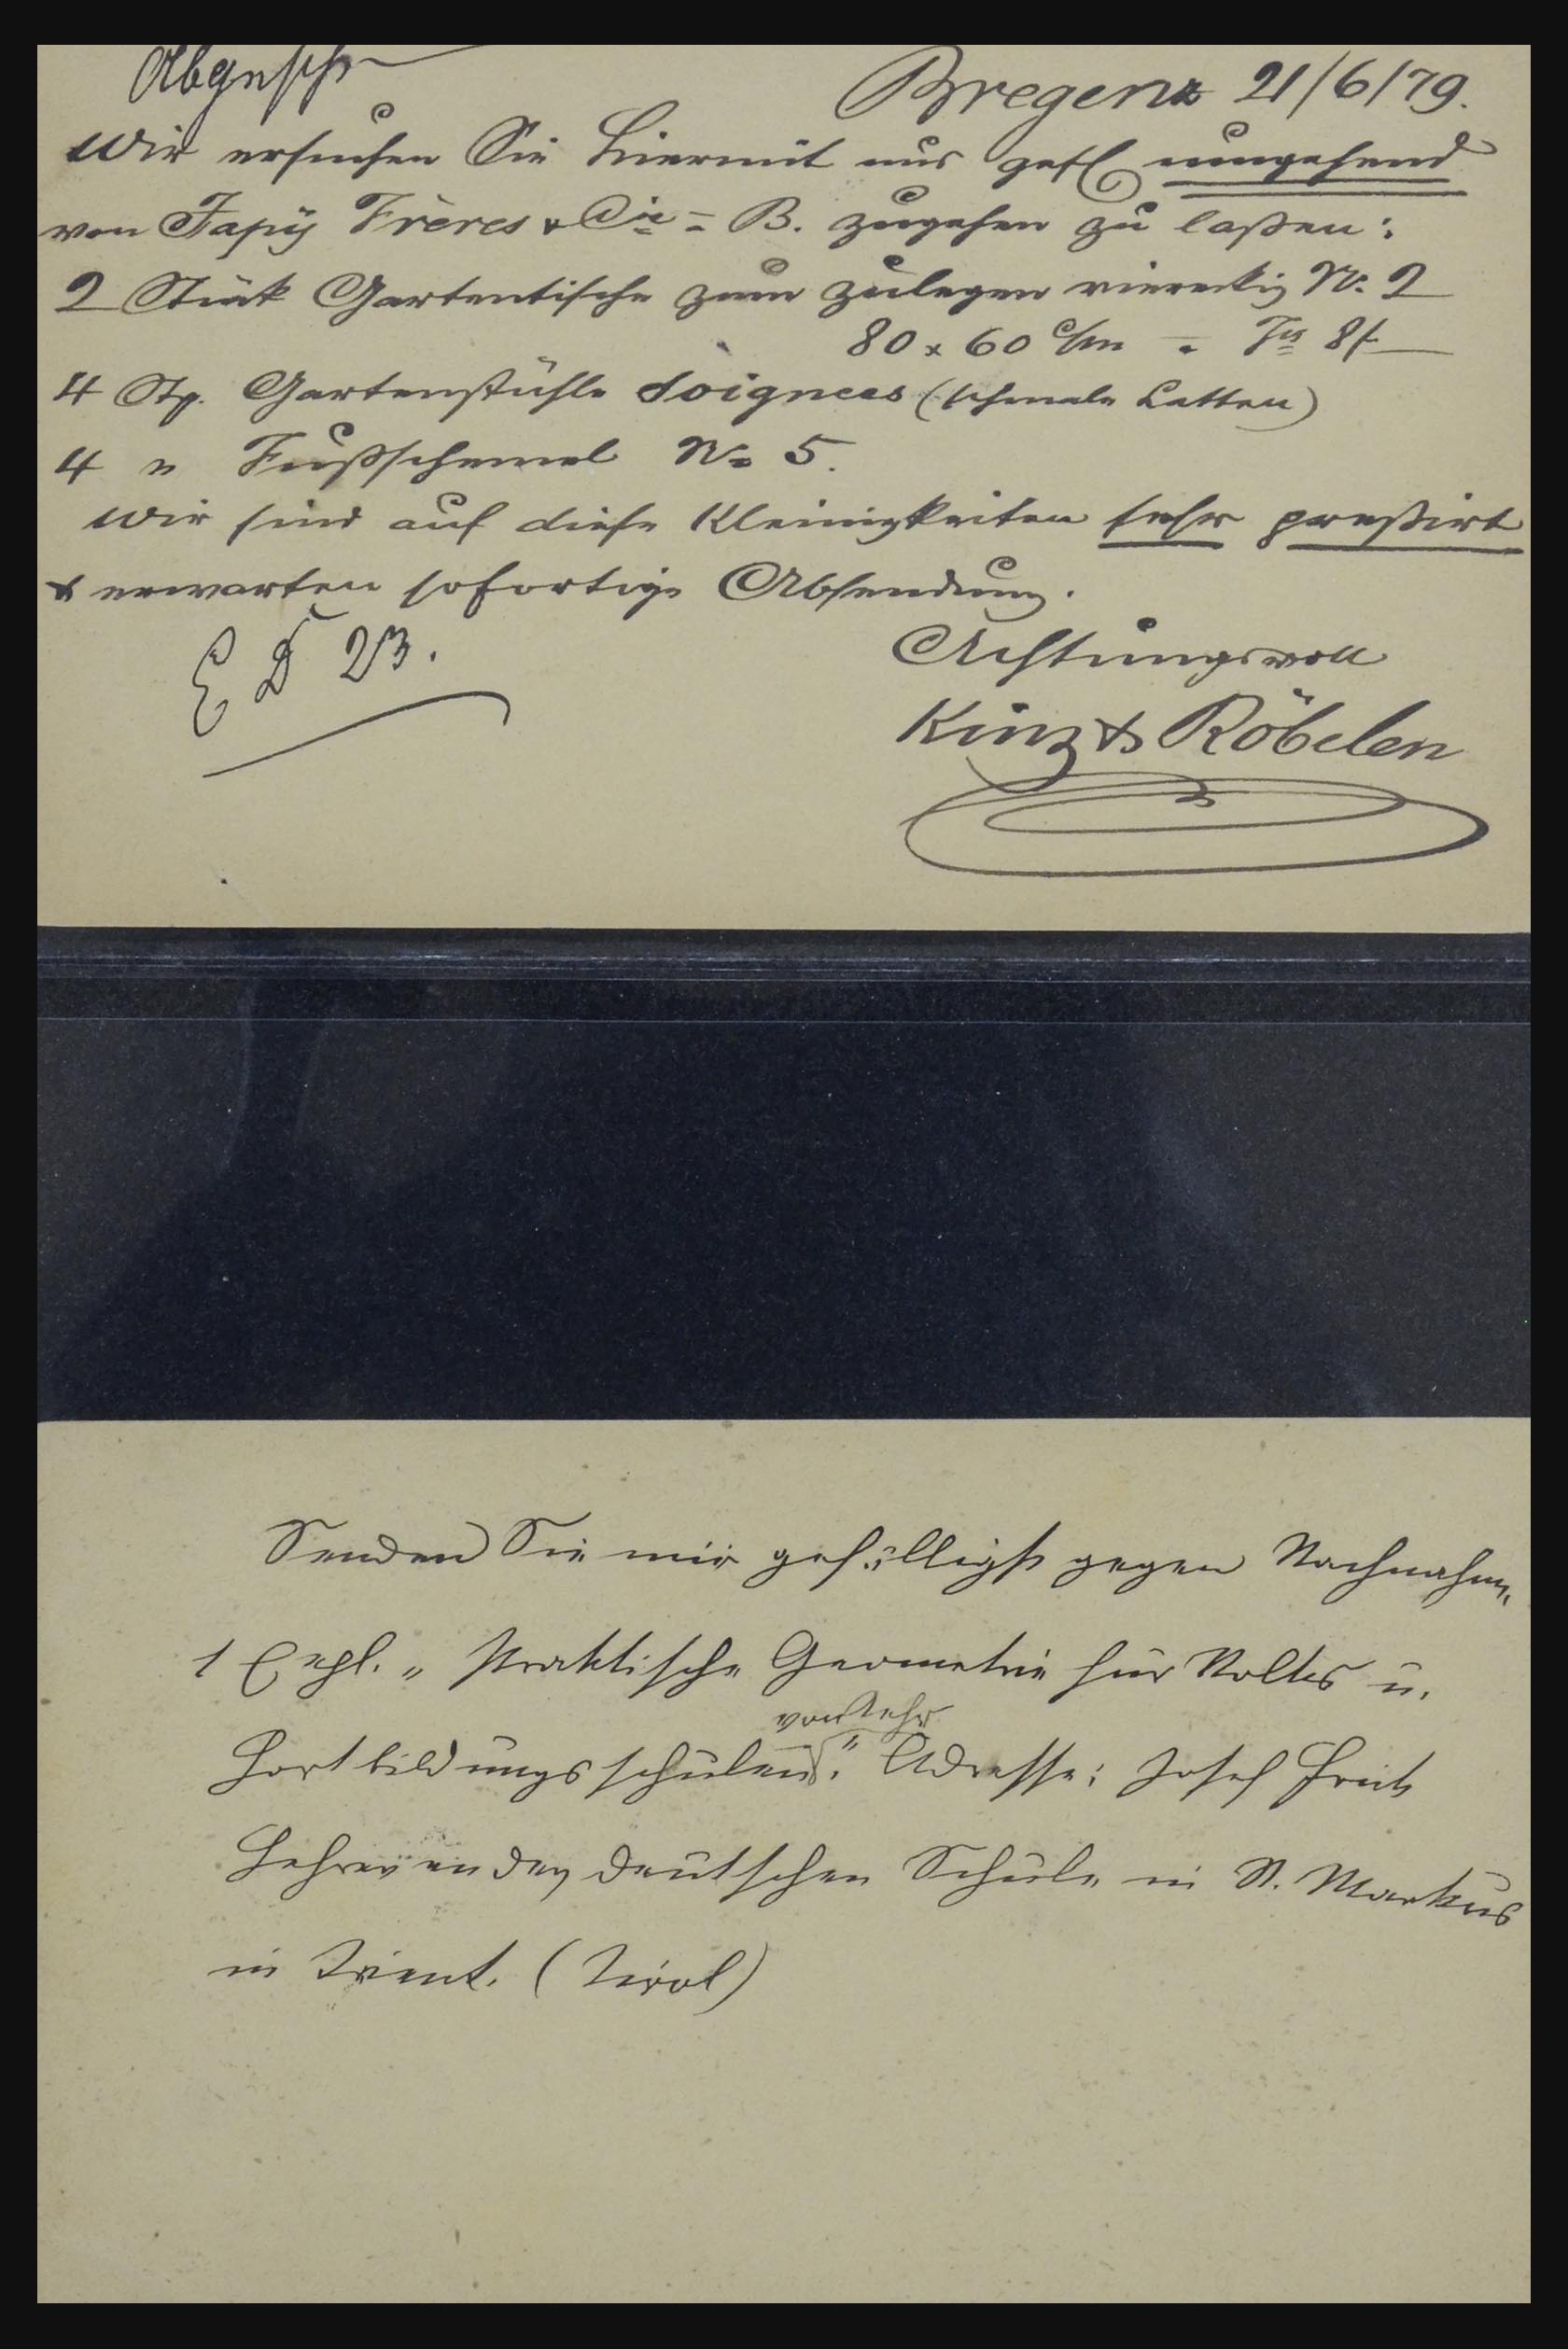 Bregenz 21/6/79.
Wir ersuchen Sie hiermit uns gefl umgehend
von Japÿ Frères & Cie = B. zugehen zu laßen:
2 Stück Gartentische zum zulegen viereckig No. 2
80 x 60 c/m = Frs 8/-
4 Stg. Gartenstühle Soignees (schmale Latten)
4 " Fußschemel No 5.
Wir sind auf diese Kleinigkeiten sehr preßirt
& erwarten sofortige Absendung.
E D 23.
Achtungsvoll
Kinz & Röbelen
Senden Sie mir gefälligst gegen Nachnahme
1 Expl. „Praktische Geometrie für Volks u.
von Fehr
Fortbildungsschulen". Adresse: Josef
Lehrer an der deutschen Schule in St. Markus
in Trient. (Tirol)